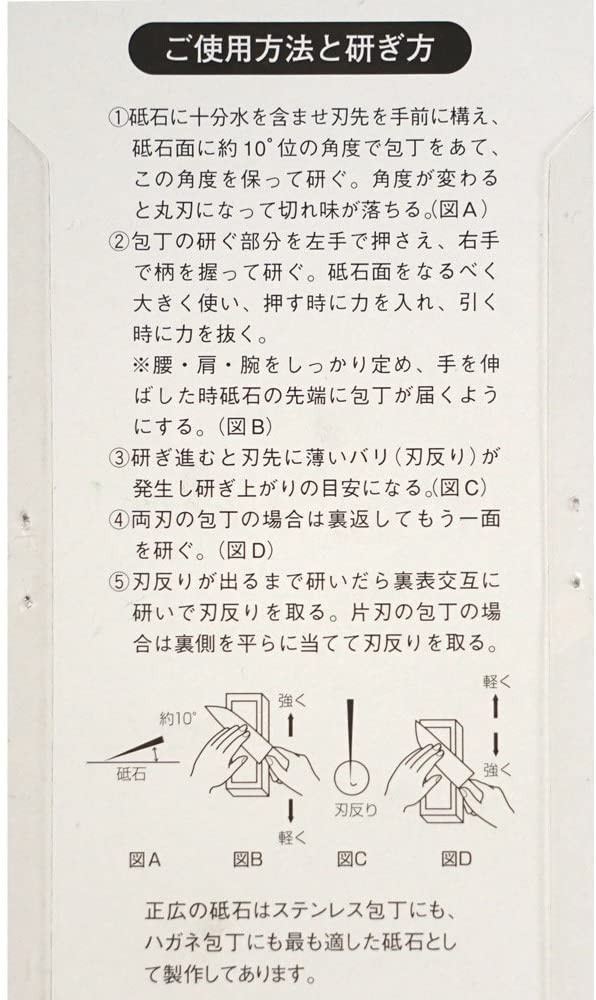 ご使用方法と研ぎ方
①砥石に十分水を含ませ刃先を手前に構え、
砥石面に約10°位の角度で包丁をあて、
この角度を保って研ぐ。角度が変わる
と丸刃になって切れ味が落ちる。(図A)
②包丁の研ぐ部分を左手で押さえ、右手
で柄を握って研ぐ。砥石面をなるべく
大きく使い、押す時に力を入れ、引く
時に力を抜く。
※腰・肩・腕をしっかり定め、手を伸
ばした時砥石の先端に包丁が届くよう
にする。(図B)
③研ぎ進むと刃先に薄いバリ(刃反り)が
発生し研ぎ上がりの目安になる。(図C)
④両刃の包丁の場合は裏返してもう一面
を研ぐ。(図D)
⑤刃反りが出るまで研いだら裏表交互に
研いで刃反りを取る。片刃の包丁の場
合は裏側を平らに当てて刃反りを取る。
約10°
砥石
図A
強く
軽く
図B
刃反り
図C
軽く
強く
図D
正広の砥石はステンレス包丁にも、
ハガネ包丁にも最も適した砥石とし
て製作してあります。